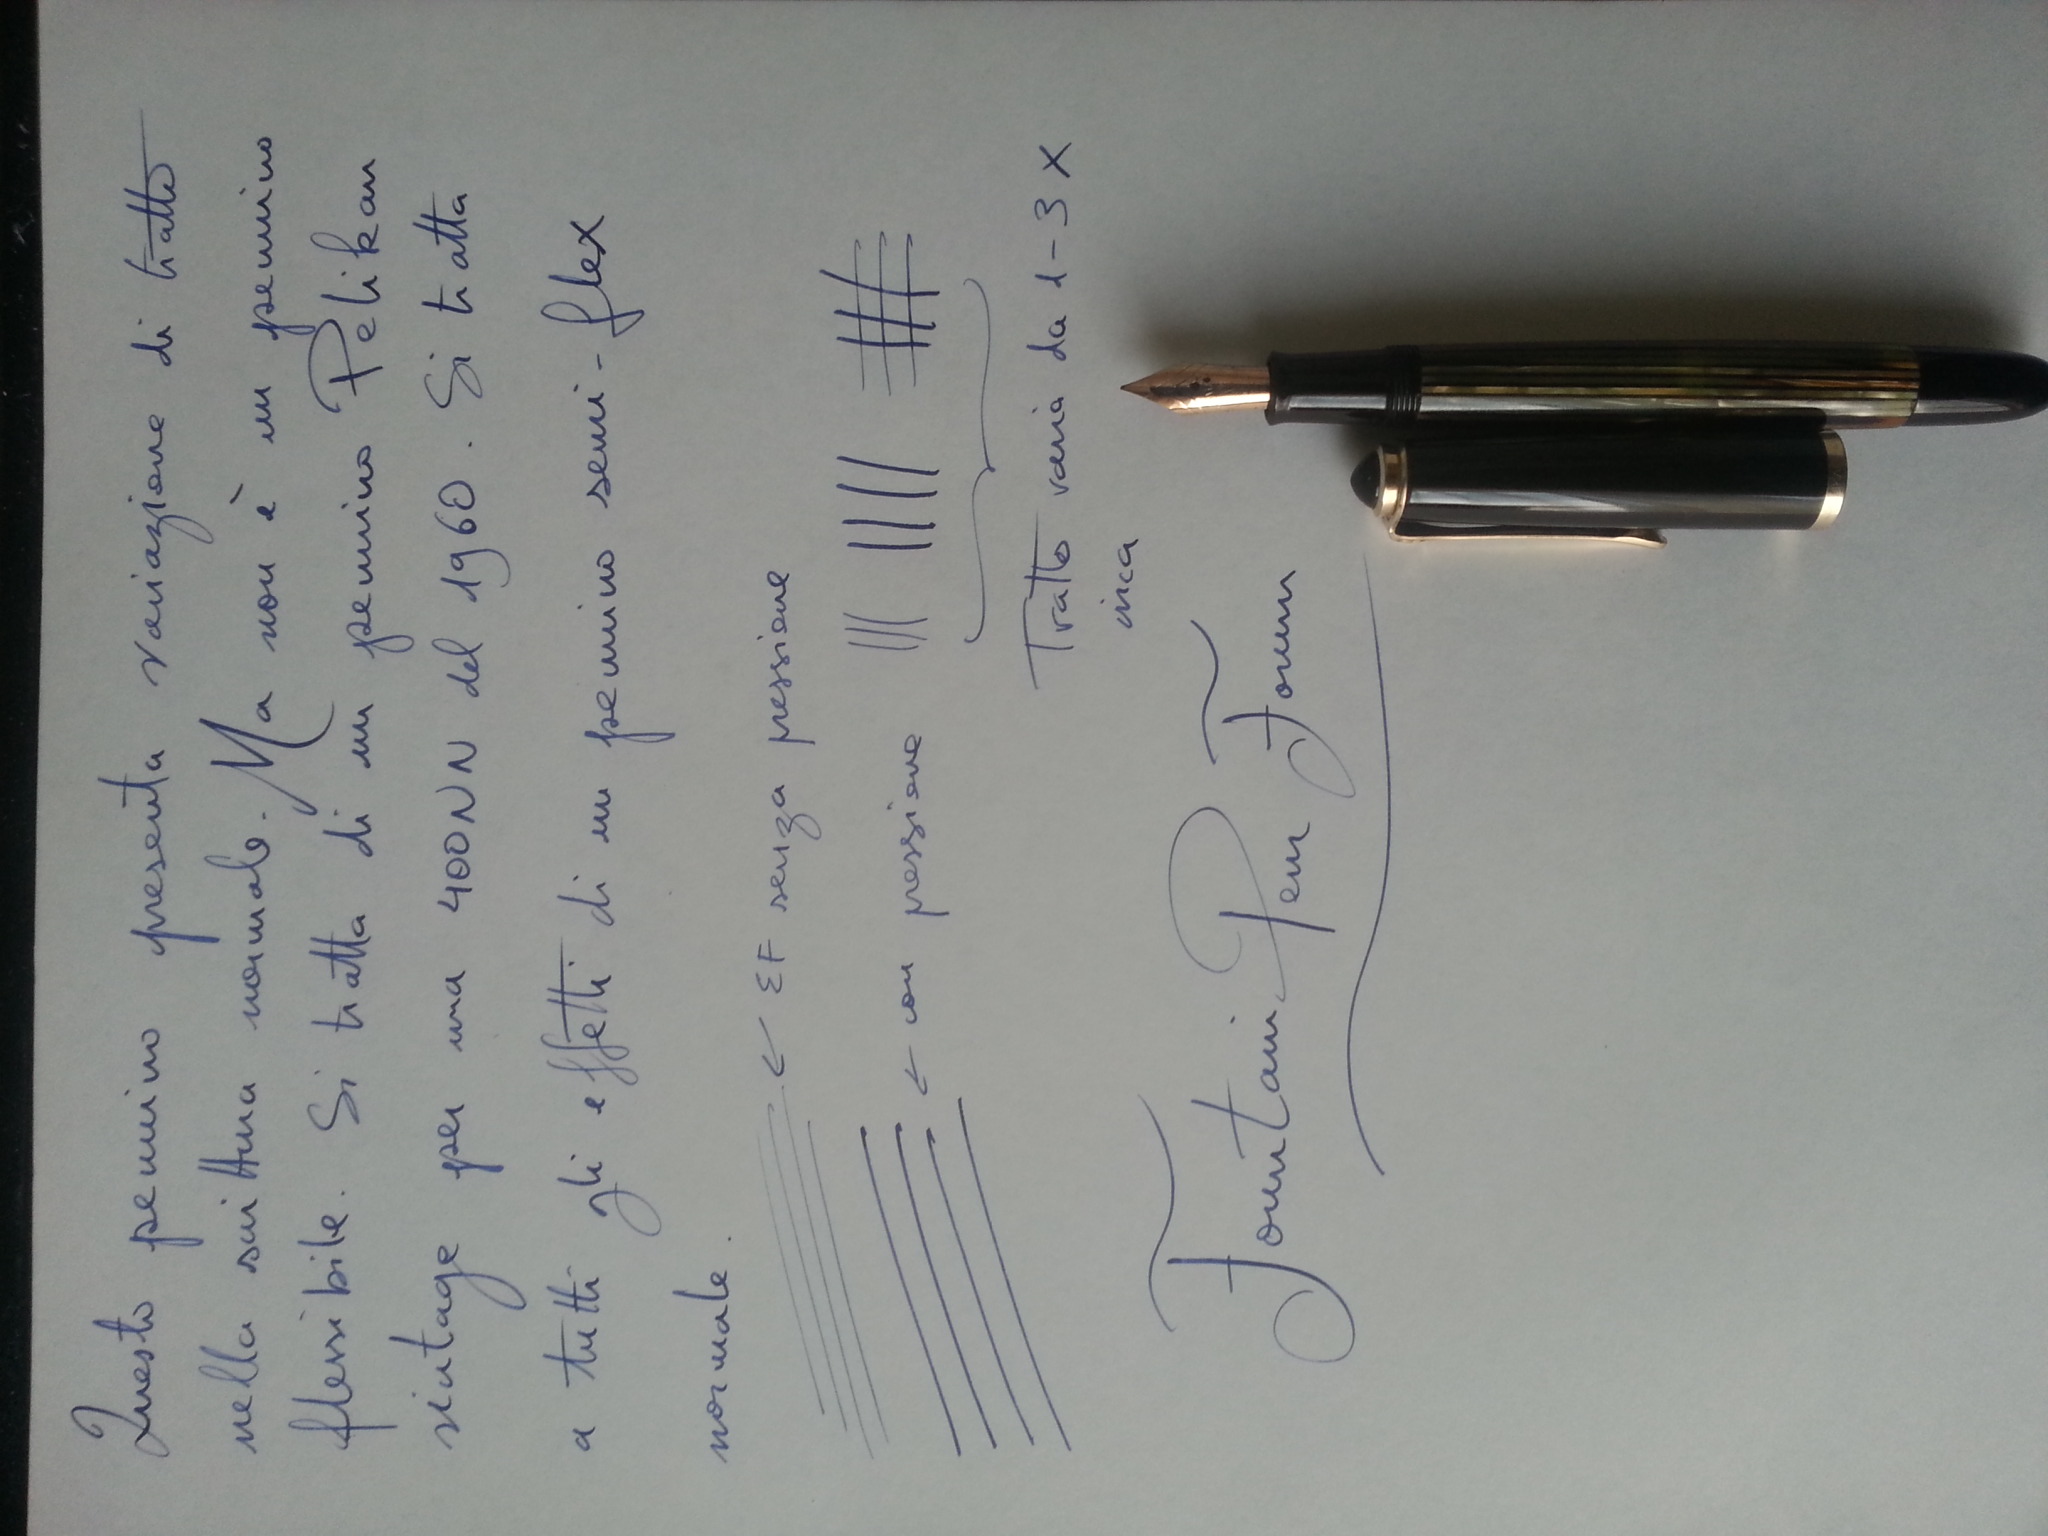 Questo pennino presenta variazione di tratto
nella scrittura normale. Ma non è un pennino
flessibile. Si tratta di un pennino Pelikan
vintage per una 400NN del 1960. Si tratta
a tutti gli effetti di un pennino semi-flex
normale.
← EF senza pressione
← con pressione
Tratto varia da 1-3 X
circa
Fountain Pen Forum